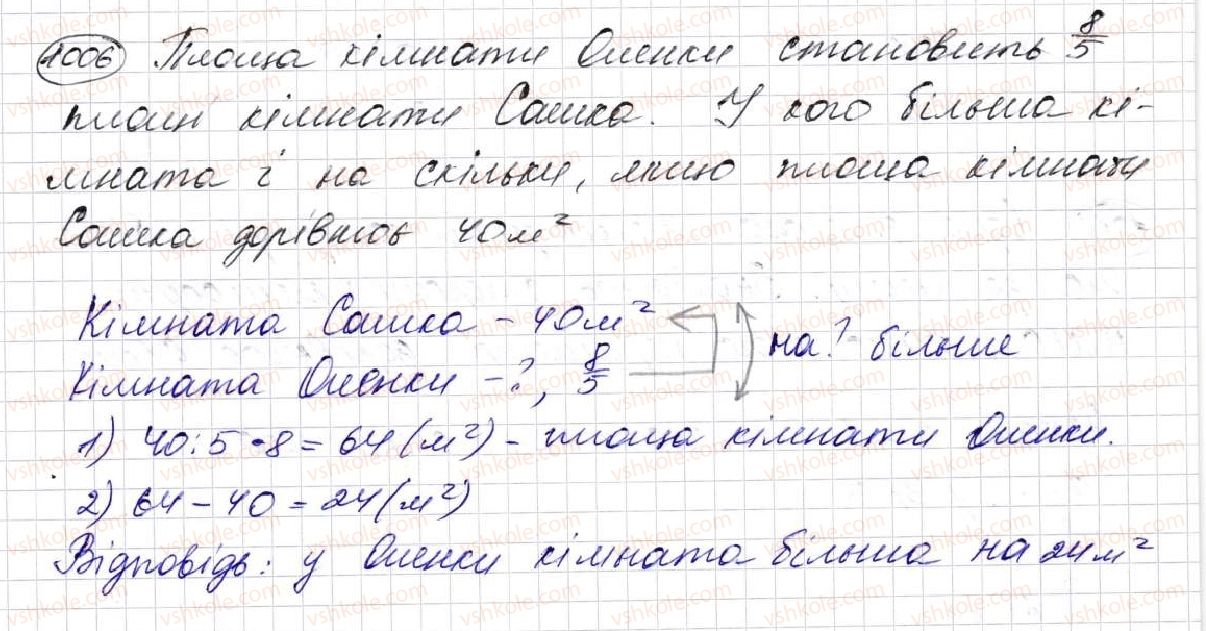 1006 Площа кімнати Оленки становить 8/5
площі кімнати Сашка. У кого більша кі-
мната і на скільки, якщо площа кімнати
Сашка дорівнює 40 м²
Кімната Сашка - 40 м²
на? більше
Кімната Оленки - ?, 8/5
1) 40:5•8=64 (м²) - площа кімнати Оленки.
2) 64-40=24 (м²)
Відповідь: у Оленки кімната більша на 24 м²